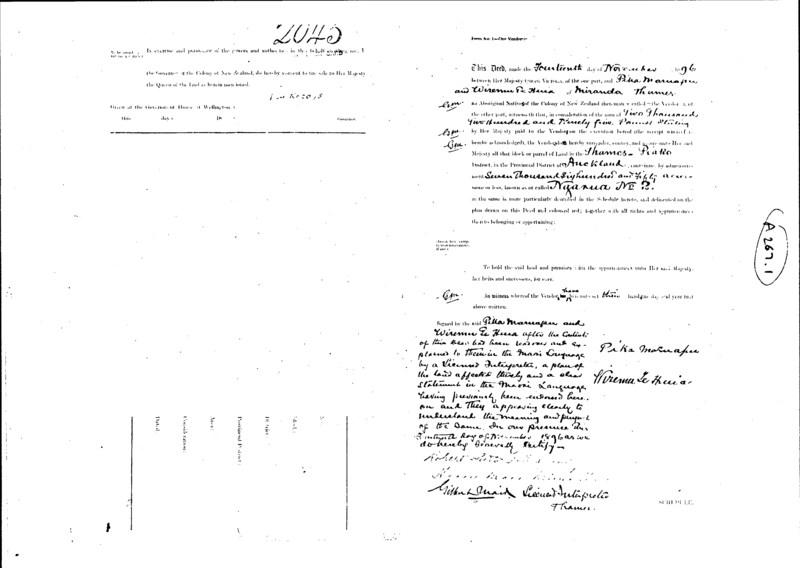 2045
In exercise and pursuance of the powers and authorities in this behalf
the Governor of the Colony of New Zealand, do hereby consent to the sale to Her Majesty
the Queen of the land as hereinmentioned.
Given at the Government House at Wellington
this day
Governor.
District.
Provincial District.
Area.
Consideration.
Dated.
This Deed, made the Fourteenth day of November 1896
between Her Majesty Queen Victoria, of the one part, and Pika Mamapu
and Wiremu Te Huia of Miranda Thames
an Aboriginal Native of the Colony of New Zealand hereinafter called the Vendor, of
the other part, witnesseth that, in consideration of the sum of Two Thousand
Two Hundred and Ninety five Pounds Sterling
by Her Majesty paid to the Vendor on the execution hereof (the receipt whereof is
hereby acknowledged), the Vendor doth hereby surrender, convey, and assure unto Her said
Majesty all that block or parcel of Land in the Thames - Piako
District, in the Provincial District of Auckland, containing by admeasure-
ment Seven Thousand Eight hundred and Fifty acres
more or less, known as or called Ngarua No 2.
as the same is more particularly described in the Schedule hereto, and delineated on the
plan drawn on this Deed and coloured red; together with all rights and appurtenances
thereto belonging or appertaining:
To hold the said land and premises with the appurtenances unto Her said Majesty,
her heirs and successors, for ever.
In witness whereof the Vendor have hereunto set their hand the day and year first
above written.
Signed by the said Pika Mamapu and
Wiremu Te Huia after the Contents
of this Deed had been read over and ex-
plained to them in the Maori Language
by a Licensed Interpreter, a plan of
the land affected thereby and a clear
Statement in the Maori Language
having previously been endorsed here-
on and they appearing clearly to
understand the meaning and purport
of the Same. In our presence this
Fourteenth day of November 1896 as we
do hereby severally certify -
Pika Mamapu
Wiremu Te Huia
Robert
Gilbert Mair Licensed Interpreter
Thames.
SCHEDULE.
A 267.1